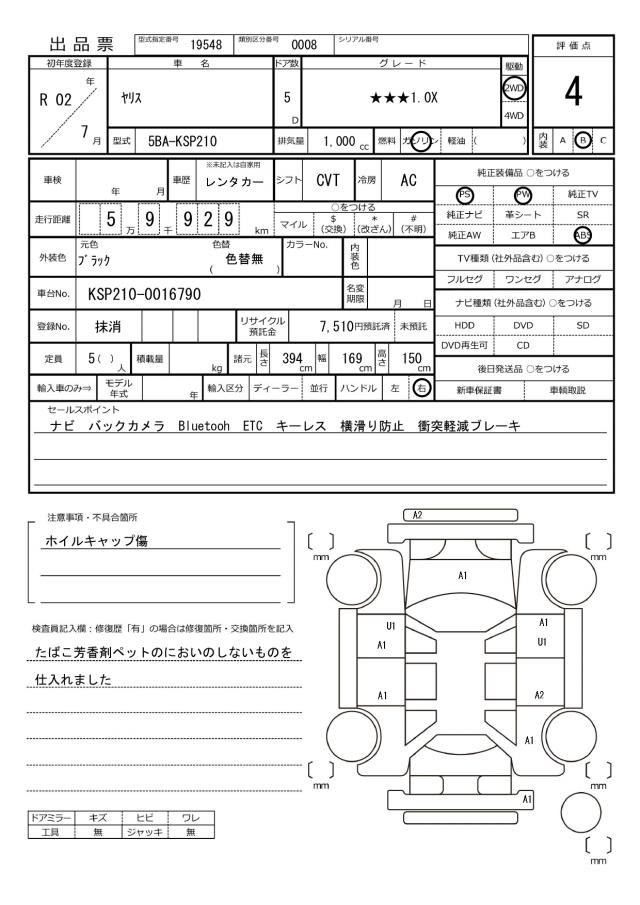 出品票 型式指定番号 19548 類別区分番号 0008 シリアル番号
評価点
4
内装 A B C
初年度登録 車名 ドア数 グレード 駆動
R 02 年 7 月 ヤリス 5 D ★★★1.0X 2WD 4WD
型式 5BA-KSP210 排気量 1,000 cc 燃料 ガソリン 軽油 ( )
車検 年 月 車歴 ※未記入は自家用 レンタカー シフト CVT 冷房 AC
走行距離 5 万 9 千 9 2 9 km ○をつける
マイル $ (交換) * (改ざん) # (不明)
外装色 元色 ブラック 色替 ( 色替無 ) カラーNo. 内装色
車台No. KSP210-0016790 名変期限 月 日
登録No. 抹消 リサイクル預託金 7,510円預託済 未預託
定員 5( ) 人 積載量 kg 諸元 長さ 394 cm 幅 169 cm 高さ 150 cm
輸入車のみ⇒ モデル年式 年 輸入区分 ディーラー 並行 ハンドル 左 右
純正装備品 ○をつける
PS PW 純正TV
純正ナビ 革シート SR
純正AW エアB ABS
TV種類 (社外品含む) ○をつける
フルセグ ワンセグ アナログ
ナビ種類 (社外品含む) ○をつける
HDD DVD SD
DVD再生可 CD
後日発送品 ○をつける
新車保証書 車輌取説
セールスポイント
ナビ バックカメラ Bluetooh ETC キーレス 横滑り防止 衝突軽減ブレーキ
注意事項・不具合箇所
ホイルキャップ傷
検査員記入欄：修復歴「有」の場合は修復箇所・交換箇所を記入
たばこ芳香剤ペットのにおいのしないものを
仕入れました
ドアミラー キズ ヒビ ワレ
工具 無 ジャッキ 無
A2
[ ] mm [ ] mm
A1
U1 A1
A1 U1
A1 A2
A1
[ ] mm [ ] mm
A1
[ ] mm